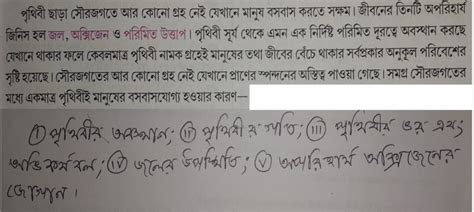 পৃথিবী ছাড়া সৌরজগতে আর কোনো গ্রহ নেই যেখানে মানুষ বসবাস করতে সক্ষম। জীবনের তিনটি অপরিহার্য
জিনিস হল জল, অক্সিজেন ও পরিমিত উত্তাপ। পৃথিবী সূর্য থেকে এমন এক নির্দিষ্ট পরিমিত দূরত্বে অবস্থান করছে
যেখানে থাকার ফলে কেবলমাত্র পৃথিবী নামক গ্রহেই মানুষের তথা জীবের বেঁচে থাকার সর্বপ্রকার অনুকূল পরিবেশের
সৃষ্টি হয়েছে। সৌরজগতের আর কোনো গ্রহ নেই যেখানে প্রাণের স্পন্দনের অস্তিত্ব পাওয়া গেছে। সমগ্র সৌরজগতের
মধ্যে একমাত্র পৃথিবীই মানুষের বসবাসযোগ্য হওয়ার কারণ—
(i) পৃথিবীর অবস্থান; (ii) পৃথিবীর গতি; (iii) পৃথিবীর ভর এবং
অভিকর্ষ বল; (iv) জলের উপস্থিতি; (v) অপরিহার্য অক্সিজেনের
জোগান।